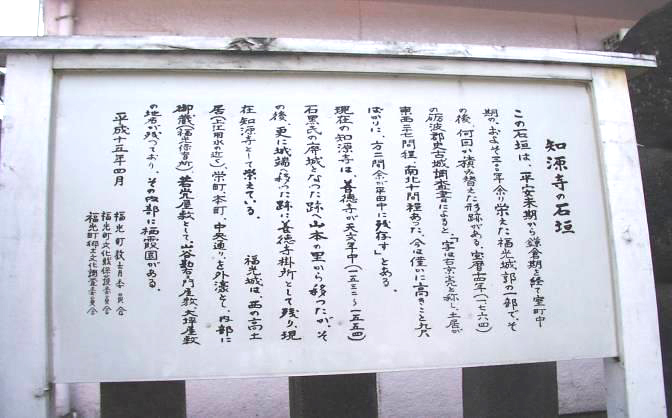 知源寺の石垣
この石垣は、平安末期から鎌倉期を経て室町中
期の、およそ三百年余り栄えた福光城郭の一部で、そ
の後、何回か積み替えた形跡がある。宝暦十四年(一七六四)
の砺波郡史古城調査書によると、「字は石京亮と称し、土居が
東西三七間程、南北十間程あった、今は僅かに高きこと九尺
ばかりに、方二間余が平田中に残存す」とある。
現在の知源寺は、善徳寺が天文年中(一五三二~一五五四)
石黒氏の廃城となった跡へ山本の里から移つたが、そ
の後、更に城端へ移った跡に善徳寺掛所として残り、現
在、知源寺として栄えている。
福光城は、西の高土
居(上江用水の近く)、栄町、本町、中央通りを外濠とし、内部に
御蔵(福光信書所)、若宮屋敷として山谷勘右ヱ門屋敷、大坪屋敷
の地名が残っており、その内部に栖霞園がある。
平成十五年四月
福光町教育委員会
福光町文化財保護委員会
福光町郷土文化調査委員会